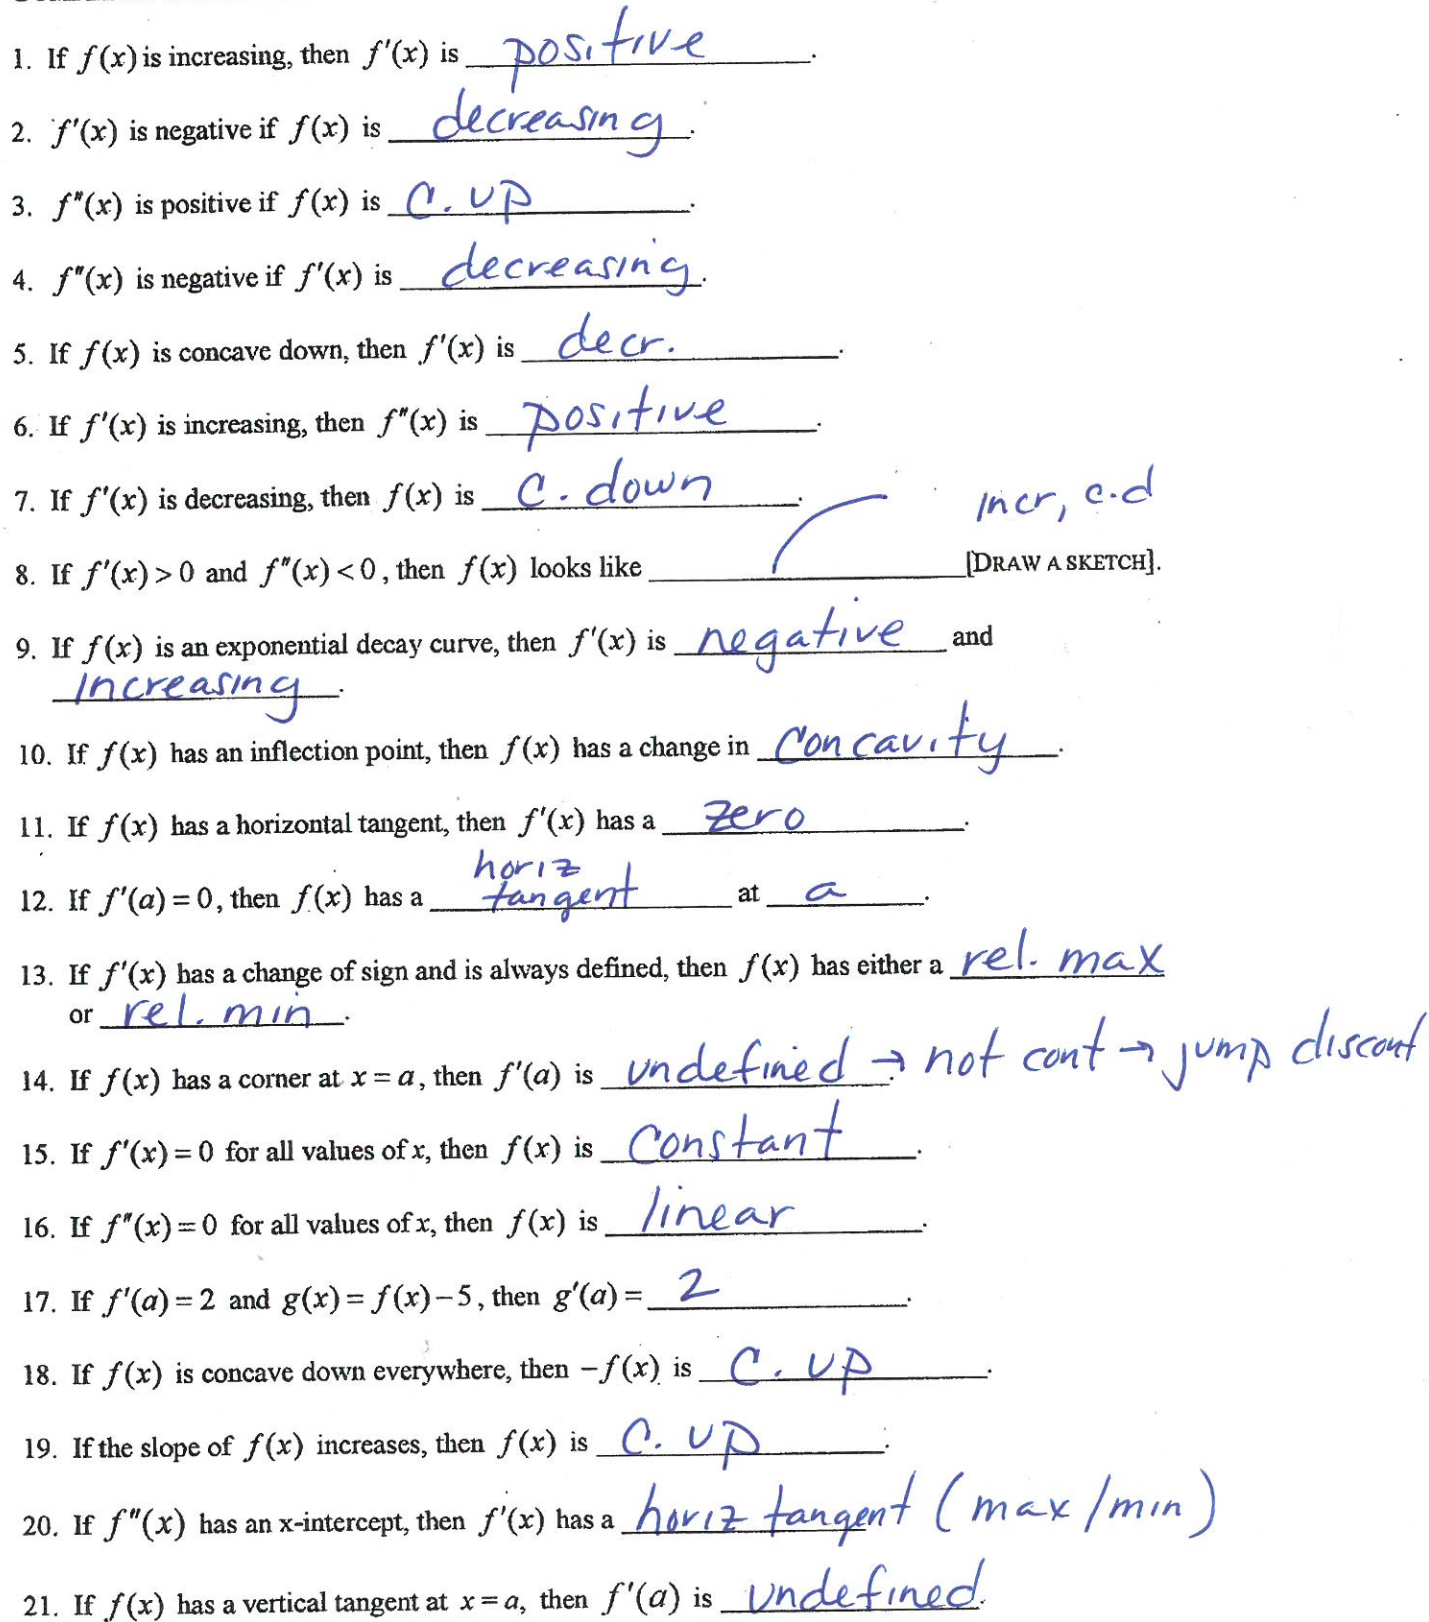 1. If f(x) is increasing, then f'(x) is positive.
2. f'(x) is negative if f(x) is decreasing.
3. f"(x) is positive if f(x) is C. up.
4. f"(x) is negative if f'(x) is decreasing.
5. If f(x) is concave down, then f'(x) is decr.
6. If f'(x) is increasing, then f"(x) is positive.
7. If f'(x) is decreasing, then f(x) is C. down.
incr, c.d
8. If f'(x) > 0 and f"(x) < 0, then f(x) looks like ____ [DRAW A SKETCH].
9. If f(x) is an exponential decay curve, then f'(x) is negative and
increasing.
10. If f(x) has an inflection point, then f(x) has a change in concavity.
11. If f(x) has a horizontal tangent, then f'(x) has a zero.
horiz
12. If f'(a) = 0, then f(x) has a tangent at a.
13. If f'(x) has a change of sign and is always defined, then f(x) has either a rel. max
or rel. min.
14. If f(x) has a corner at x = a, then f'(a) is undefined. → not cont → jump discont
15. If f'(x) = 0 for all values of x, then f(x) is constant.
16. If f"(x) = 0 for all values of x, then f(x) is linear.
17. If f'(a) = 2 and g(x) = f(x) – 5, then g'(a) = 2.
18. If f(x) is concave down everywhere, then –f(x) is C. up.
19. If the slope of f(x) increases, then f(x) is C. up.
20. If f"(x) has an x-intercept, then f'(x) has a horiz tangent (max/min)
21. If f(x) has a vertical tangent at x = a, then f'(a) is undefined.